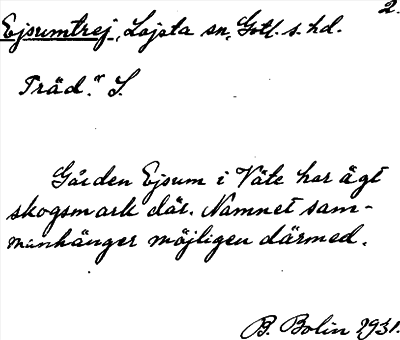 2.
Ejsumtrej, Lojsta sn, Gotl. s. hd.
Träd." S.
Gården Ejsum i Väte har ägt
skogsmark där. Namnet sam-
manhänger möjligen därmed.
B. Bolin 1931.